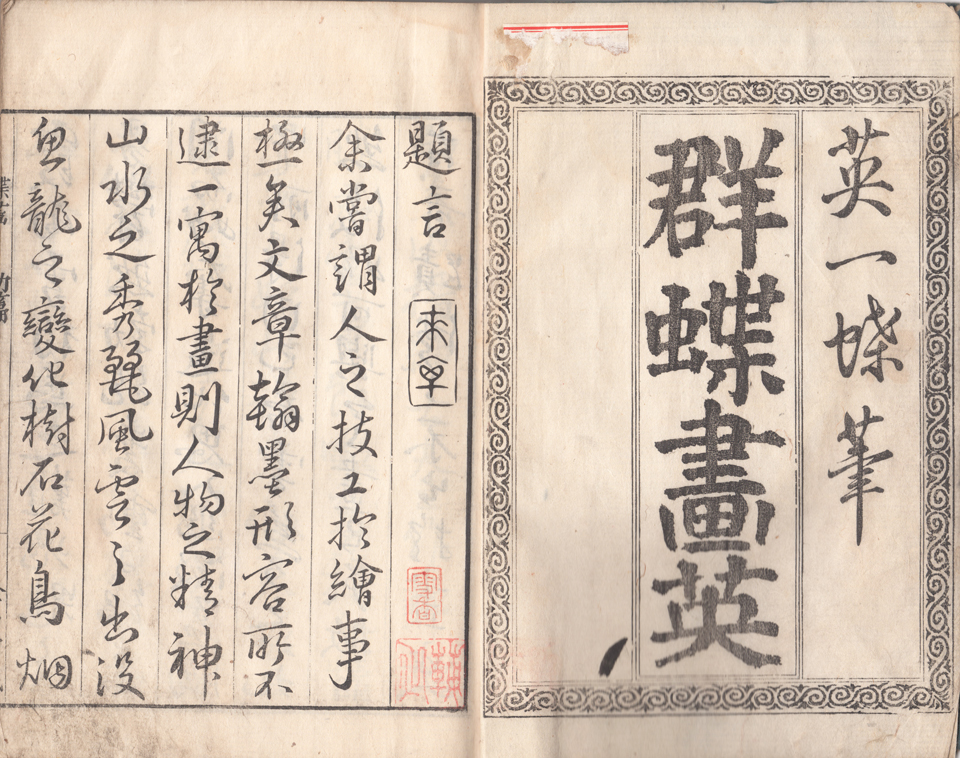 英一蝶筆
群蝶畫英
題言
余嘗謂人之技工於繪事
極矣文章翰墨形容所不
逮一寓於畫則人物之精神
山水之秀麗風雲之出沒
魚龍之變化樹石花鳥烟